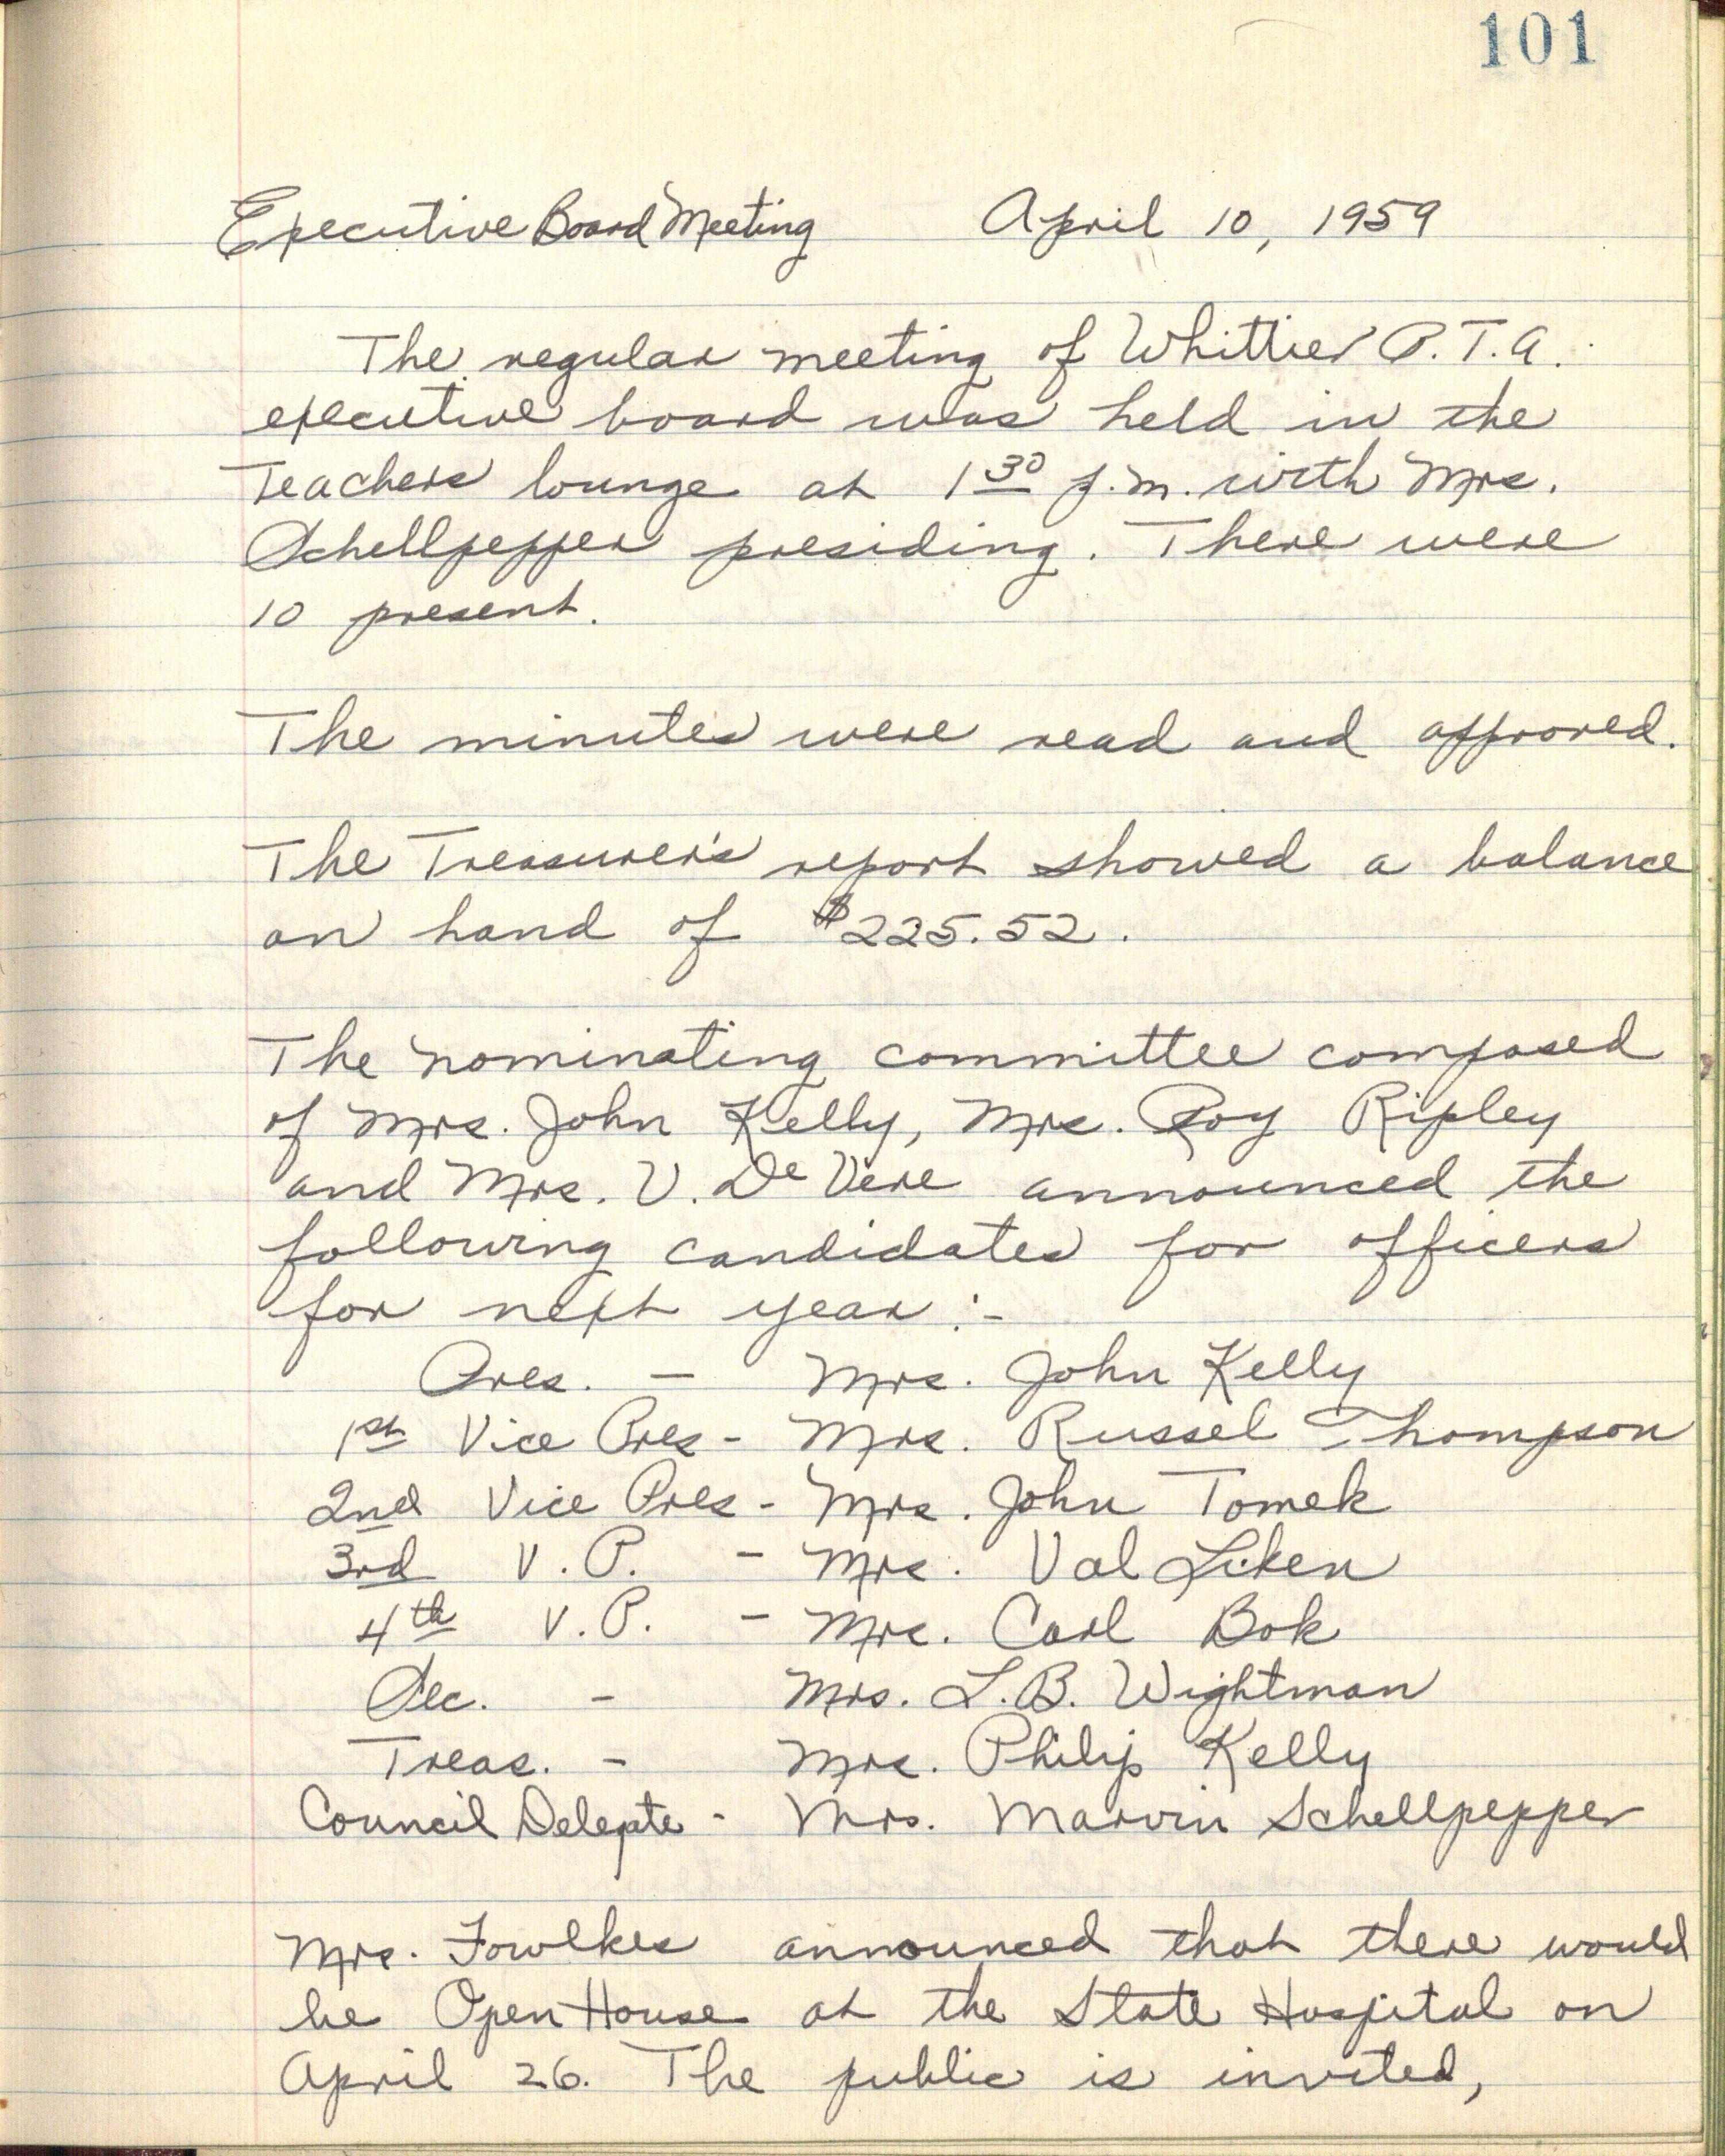 101
Executive Board Meeting April 10, 1959
The regular meeting of Whittier P.T.A.
executive board was held in the
Teachers lounge at 1 30 p.m. with Mrs.
Schellpepper presiding. There were
10 present.
The minutes were read and approved.
The Treasurer's report showed a balance
on hand of $225.52.
The nominating committee composed
of Mrs. John Kelly, Mrs. Roy Ripley
and Mrs. V. De Vere announced the
following candidates for officers
for next year:-
Pres. - Mrs. John Kelly
1st Vice Pres - Mrs. Russel Thompson
2nd Vice Pres - Mrs. John Tomek
3rd V.P. - Mrs. Val Liken
4th V.P. - Mrs. Carl Bok
Sec. - Mrs. L.B. Wightman
Treas. - Mrs. Philip Kelly
Council Delegate - Mrs. Marvin Schellpepper
Mrs. Fowlkes announced that there would
be Open House at the State Hospital on
April 26. The public is invited,